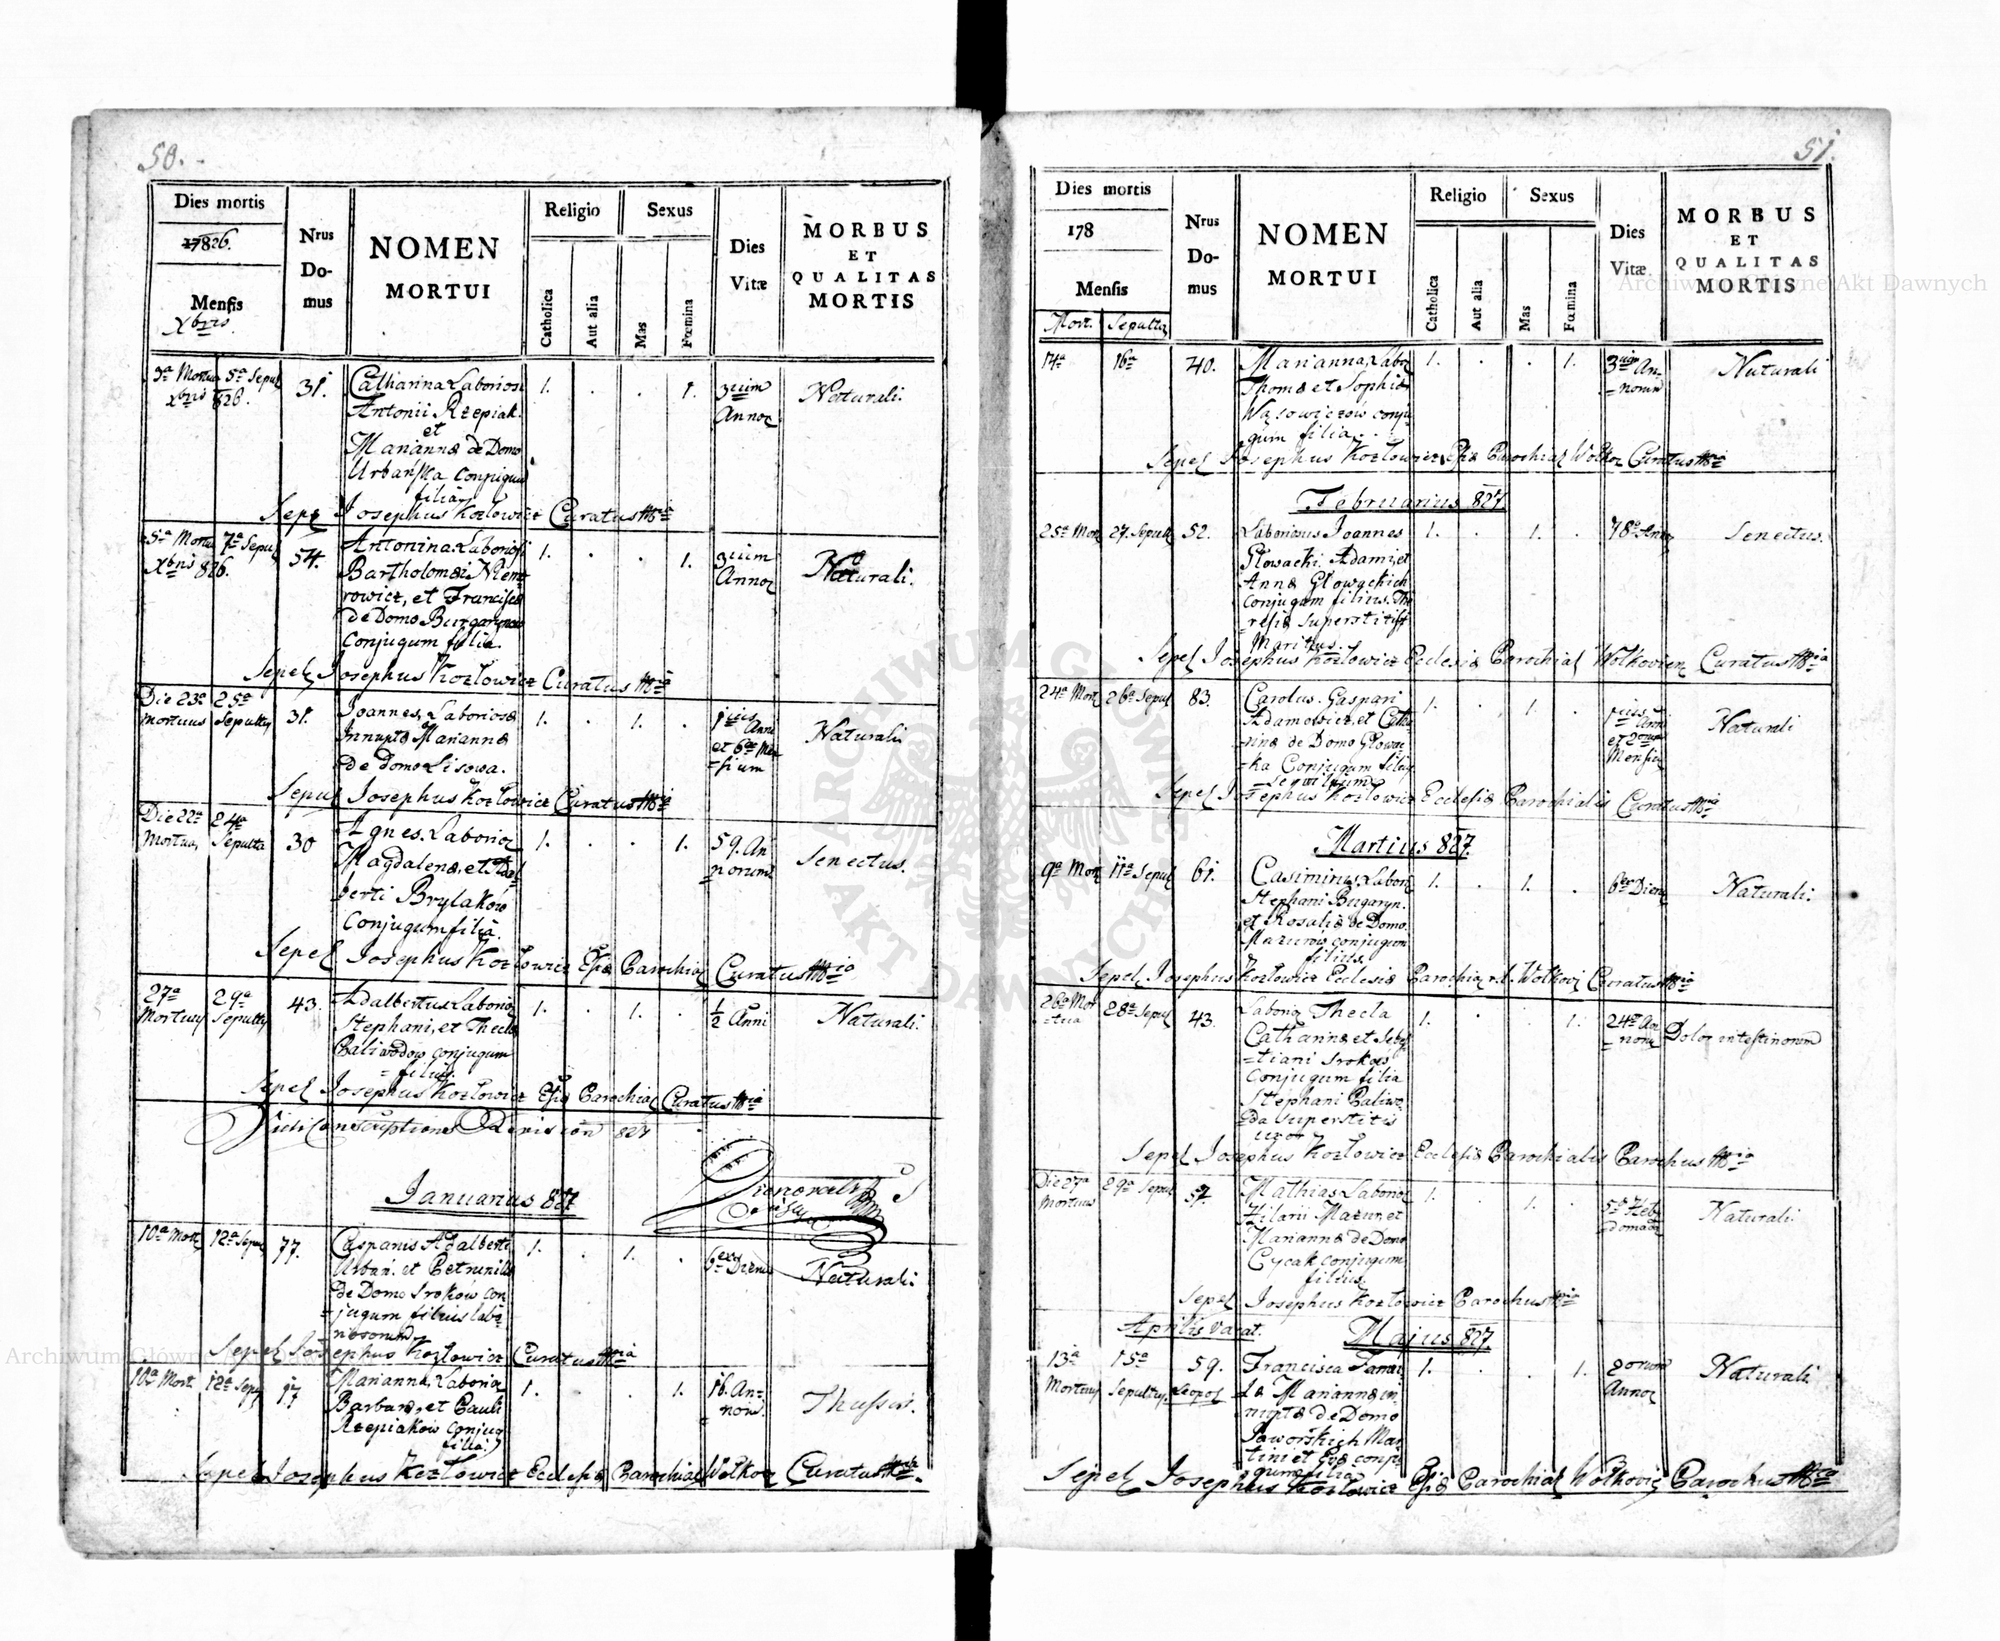 50.
Dies mortis
17826.
Mensis
Xbris
Nrus
Do-
mus
NOMEN
MORTUI
Religio
Catholica
Aut alia
Sexus
Mas
Fœmina
Dies
Vitæ
MORBUS
ET
QUALITAS
MORTIS
3a Mortua 5a Sepul
Xbris 826.
31.
Catharina Laboriosi
Antonii Rzepiak
et
Mariannæ de Domo
Urbańska Conjugum
filia
1. . . 1.
3ium
Annor
Naturali.
Sepel Josephus Kozłowicz Curatus
5a Mortua 7a Sepul
Xbris 826.
54.
Antonina Laboriosi
Bartholomæi Niem-
rowicz, et Franciscæ
de Domo
Conjugum filia.
1. . . 1.
3ium
Annor
Naturali.
Sepel Josephus Kozłowicz Curatus
Die 23a 25a
Mortuus Sepultus
31.
Joannes, Laboriosæ
Innuptæ Mariannæ
de domo Lisowa.
1. . 1. .
1ius Anni
et 6ex Men-
sium
Naturali
Sepul Josephus Kozłowicz Curatus
Die 22a 24a
Mortua, Sepulta
30
Agnes Laborior
Magdalenæ, et Adal-
berti Brylaków
Conjugum filia.
1. . . 1.
59. An-
norum
Senectus.
Sepel Josephus Kozłowicz Parochial Curatus
27a 29a
Mortuus Sepultus
43.
Adalbertus Laborior
Stephani, et Theclæ
Baliwodów conjugum
filius.
1. . 1. .
1/2 Anni
Naturali.
Sepel Josephus Kozłowicz Parochial Curatus
827
Januarius 827
10a Mort 12a Sepul
77.
Adalberti
Urban. et Petronillæ
de Domo Sroków con-
jugum filius labo-
riosorum
1. . 1. .
6ex Dierum
Naturali.
Sepel Josephus Kozłowicz Curatus
10a Mort. 12a Sepul
17
Marianna, Laborior
Barbaræ, et Pauli
Rzepiaków Conjug
filia.
1. . . 1.
16. An-
norum.
Thussis.
Sepel Josephus Kozłowicz Ecclesiæ Parochial Wołkow Curatus
51.
Dies mortis
178
Mensis
Mort. Sepulta
Nrus
Do-
mus
NOMEN
MORTUI
Religio
Catholica
Aut alia
Sexus
Mas
Fœmina
Dies
Vitæ
MORBUS
ET
QUALITAS
MORTIS
14a 16a
40.
Marianna, Labor
Thomæ et Sophiæ
Wąsowiczów conju-
gum filia.
1. . . 1.
3ium An-
norum
Naturali
Sepel Josephus Kozłowicz Parochial Wołkow Curatus
Februarius 827.
25a Mort 27. Sepult
52.
Laboriosus Joannes
Głowacki Adami, et
Annæ Głowackich
Conjugum filius. The-
resiæ superstitis
Maritus.
1. . 1. .
78. Annor
Senectus.
Sepel Josephus Kozłowicz Ecclesiæ Parochial Wołkovien Curatus
24a Mort 26a Sepul
83.
Carolus. Gaspari
Adamowicz, et Catha-
rinæ de Domo Głowac-
ka Conjugum filius
1. . 1. .
1ius Anni
et 2orum
Mensium
Naturali
Sepel Josephus Kozłowicz Ecclesiæ Parochialis Curatus
Martius 827.
9a Mort 11a Sepul
61.
Casimirus, Labori
Stephani Bugaryn.
et Rosaliæ de Domo
Mazurów conjugum
filius.
1. . 1. .
6ex Dierum
Naturali.
Sepel Josephus Kozłowicz Ecclesiæ Parochia Wołkow Curatus
26a Mor- 28a Sepul
-tua
43.
Labor Thecla
Catharinæ et Sebas-
-tiani Sroków
Conjugum filia
Stephani Baliwo-
da superstitis
uxor
1. . . 1.
24or An-
norum
Dolor intestinorum
Sepel Josephus Kozłowicz Ecclesiæ Parochialis Parochus
Die 27a 29a Sepul
Mortuus
57.
Mathias Laborior
Hilarii Mazur, et
Mariannæ de Domo
Cycak conjugum
filius
1. . 1. .
5 Heb-
domadar
Naturali.
Sepel Josephus Kozłowicz Parochus
Aprilis vacat.
Majus 827.
13a 15a
Mortuus Sepultus.
59.
Leopol
Francisca
Mariannæ in-
nuptæ de Domo
Jaworskich Mar-
tini et Evæ conju-
gum filia
1. . . 1.
2orum
Annor
Naturali.
Sepel Josephus Kozłowicz Parochial Wołkovic Parochus
ARCHIWUM GŁÓWNE AKT DAWNYCH
Archiwum Główne Akt Dawnych